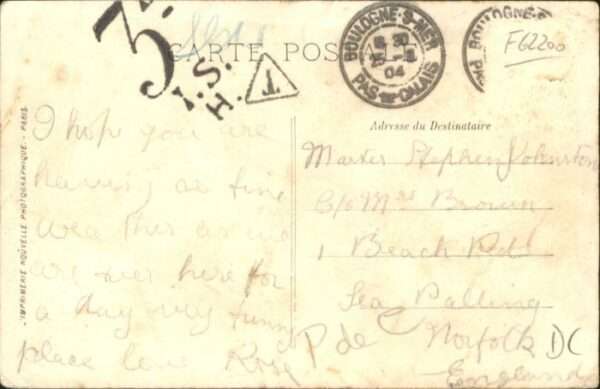 CARTE POS
3
I.S.
H.
T
BOULOGNE-S-MER
8 30
15 -8
04
PAS-DE-CALAIS
BOULOGNE-S
PAS
F62200
I hope you are
having as fine
wea this as we
are over here for
a day very funny
place love Rose
Adresse du Destinataire
Master Stephen Johnston
C/o Mrs Brown
1 Beach Rd
Sea Palling
Norfolk
England
P de C
DC
- IMPRIMERIE NOUVELLE PHOTOGRAPHIQUE - PARIS